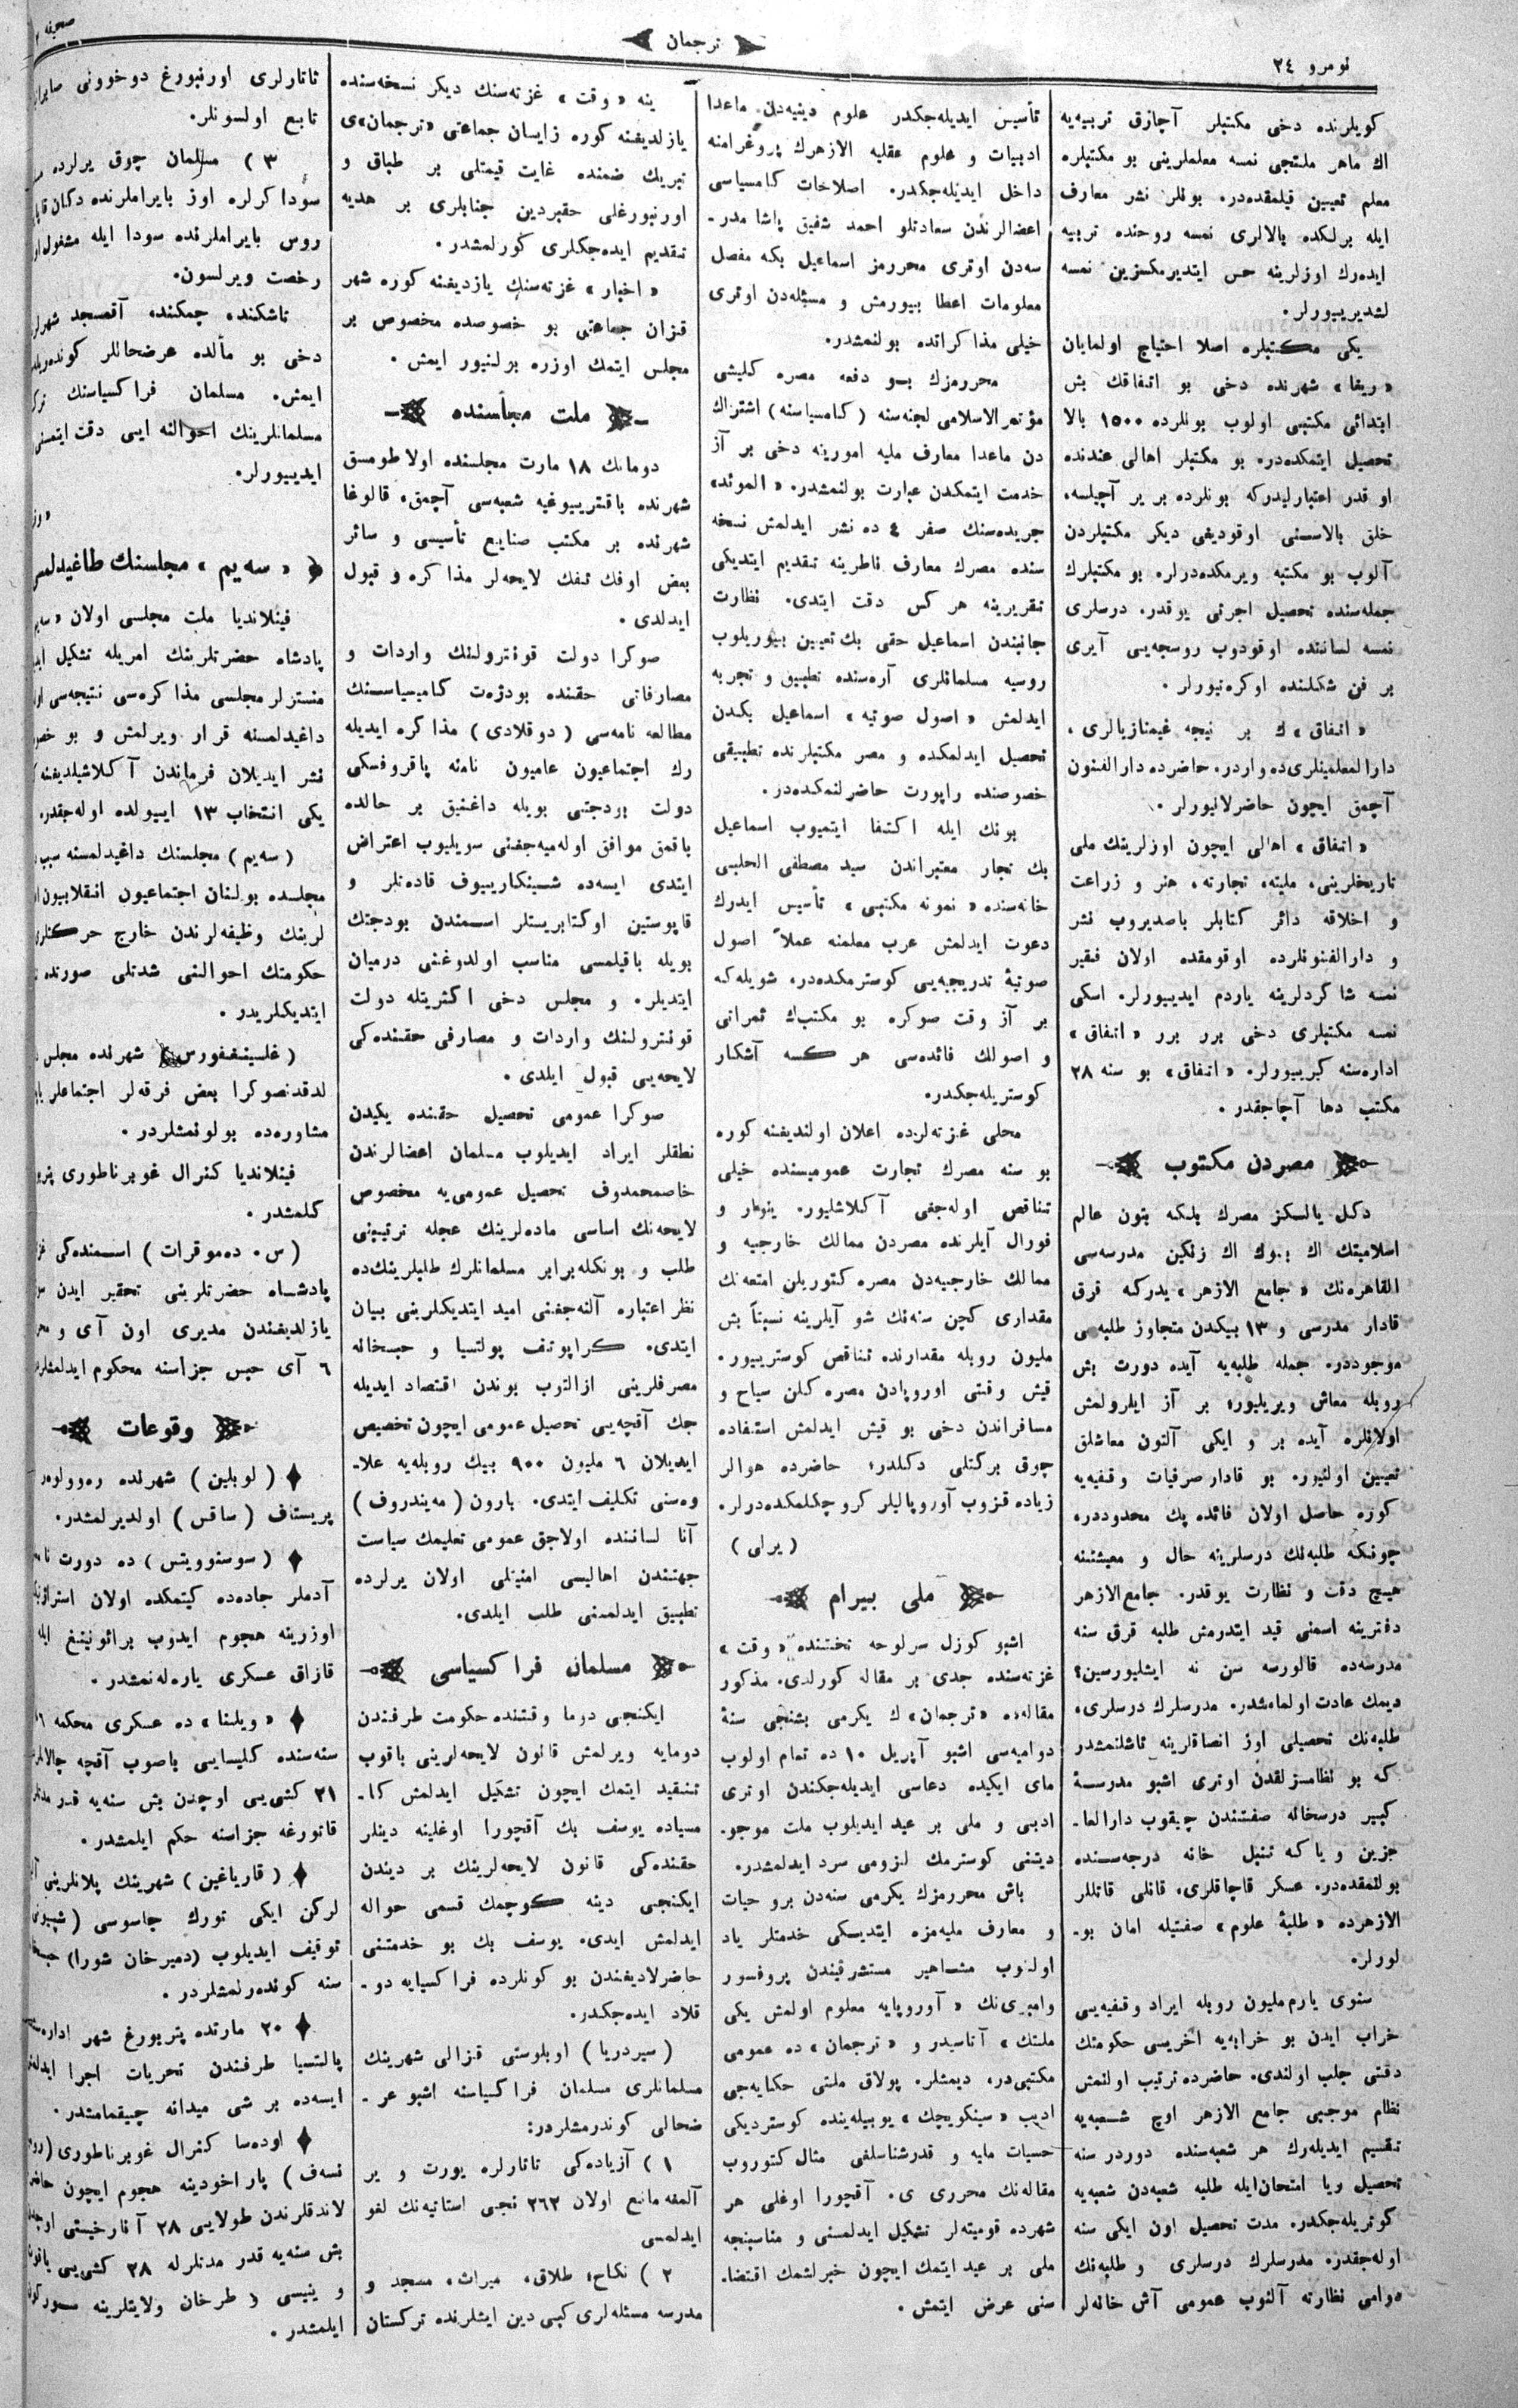 نومرو ٢٤
ترجمان
صحیفه
كویلرنده دخی مكتبلر آچازق تربیه‌یه
اك ماهر ملتجی نمسه معلملرینی بو مكتبلره
معلم تعیین قیلمقده‌در. بونلر نشر معارف
ایله برلكده بالالری نمسه روحنده تربیه
ایده‌رك اوزلرینه حس ایتدیرمكسزین نمسه
لشدیرییورلر.
یكی مكتبلره اصلا احتیاج اولمایان
« ریغا » شهرنده دخی بو اتفاقك بش
ابتدائی مكتبی اولوب بونلرده ١٥٠٠ بالا
تحصیل ایتمكده‌در. بو مكتبلر اهالی عندنده
او قدر اعتبارلیدركه بونلرده بر یر آچیلسه،
خلق بالاسنی اوقودیغی دیكر مكتبلردن
آلوب بو مكتبه ویرمكده‌درلر. بو مكتبلرك
جمله‌سنده تحصیل اجرتی یوقدر. درسلری
نمسه لساننده اوقودوب روسجه‌یی آیری
بر فن شكلنده اوكره‌تیورلر.
« اتفاق »ك بر نیجه غیمنازیالری،
دارالمعلمینلری‌ده واردر. حاضرده دارالفنون
آچمق ایچون حاضرلانیورلر.
« اتفاق » اهالی ایچون اوزلرینك ملی
تاریخلرینی، ملیته، تجارته، هنر و زراعت
و اخلاقه دائر كتابلر باصدیروب نشر
و دارالفنونلرده اوقومقده اولان فقیر
نمسه شاكردلرینه یاردم ایدییورلر. اسكی
نمسه مكتبلری دخی برر برر « اتفاق »
اداره‌سنه كیرییورلر. « اتفاق » بو سنه ٢٨
مكتب دها آچاجقدر.
مصردن مكتوب
دكل یالكز مصرك بلكه بتون عالم
اسلامیتك اك بیوك اك زنكین مدرسه‌سی
القاهره‌نك « جامع الازهر » یدركه قرق
قادار مدرسی و ١٣ بیكدن متجاوز طلبه‌سی
موجوددر. جمله طلبه‌یه آیده دورت بش
روبله معاش ویریلیور؛ بر آز ایلرولمش
اولانلره آیده بر و ایكی آلتون معاشلق
تعیین اولنیور. بو قادار صرفیات وقفیه‌یه
كوره حاصل اولان فائده پك محدوددر،
چونكه طلبه‌نك درسلرینه حال و معیشتنه
هیچ دقت و نظارت یوقدر. جامع الازهر
دفترینه اسمنی قید ایتدرمش طلبه قرق سنه
مدرسه‌ده قالورسه سن نه ایشلیورسین؟
دیمك عادت اولمامشدر. مدرسلرك درسلری،
طلبه‌نك تحصیلی اوز انصافلرینه تاشلنمشدر
كه بو نظامسزلقدن اوتری اشبو مدرسهٔ
كبیر درسخانه صفتندن چیقوب دارالعا-
جزین و یاكه تنبل خانه درجه‌سنده
بولنمقده‌در. عسكر قاچاقلری، قانلی قاتللر
الازهرده « طلبهٔ علوم » صفتیله امان بو-
لورلر.
سنوی یارم ملیون روبله ایراد وقفیه‌یی
خراب ایدن بو خرابه‌یه اخریسی حكومتك
دقتی جلب اولندی. حاضرده ترتیب اولنمش
نظام موجبی جامع الازهر اوچ شعبه‌یه
تقسیم ایدیله‌رك هر شعبه‌سنده دوردر سنه
تحصیل ویا امتحان‌ایله طلبه شعبه‌دن شعبه‌یه
كوتریله‌جكدر. مدت تحصیل اون ایكی سنه
اوله‌جقدر. مدرسلرك درسلری و طلبه‌نك
دوامی نظارته آلنوب عمومی آش خانه‌لر
تأسیس ایدیله‌جكدر علوم دینیه‌دن ماعدا
ادبیات و علوم عقلیه الازهرك پروغرامنه
داخل ایدیله‌جكدر. اصلاحات كامسیاسی
اعضالرندن سعادتلو احمد شفیق پاشا مدر-
سه‌دن اوتری محررمز اسماعیل بكه مفصل
معلومات اعطا بیورمش و مسئله‌دن اوتری
خیلی مذاكراتده بولنمشدر.
محررمزك بو دفعه مصره كلیشی
مؤتمر الاسلامی لجنه‌سنه (كامسیاسنه) اشتراك
دن ماعدا معارف ملیه امورینه دخی بر آز
خدمت ایتمكدن عبارت بولنمشدر. « المؤئد »
جریده‌سنك صفر ٤ ده نشر ایدلمش نسخه
سنده مصرك معارف ناظرینه تقدیم ایتدیكی
تقریرینه هر كس دقت ایتدی. نظارت
جانبندن اسماعیل حقی بك تعیین بیوریلوب
روسیه مسلمانلری آره‌سنده تطبیق و تجربه
ایدلمش « اصول صوتیه » اسماعیل بكدن
تحصیل ایدلمكده و مصر مكتبلرنده تطبیقی
خصوصنده راپورت حاضرلنمكده‌در.
بونك ایله اكتفا ایتمیوب اسماعیل
بك تجار معتبراندن سید مصطفی الحلبی
خانه‌سنده « نمونه مكتبی » تأسیس ایدرك
دعوت ایدلمش عرب معلمنه عملاً اصول
صوتیهٔ تدریجیه‌یی كوسترمكده‌در، شویله‌كه
بر آز وقت صوكره بو مكتبك ثمراتی
و اصولك فائده‌سی هر كسه آشكار
كوستریله‌جكدر.
محلی غزته‌لرده اعلان اولندیغنه كوره
بو سنه مصرك تجارت عمومیسنده خیلی
تناقص اوله‌جغی آكلاشلیور. ینوار و
فورال آیلرنده مصردن ممالك خارجیه و
ممالك خارجیه‌دن مصره كتوریلن امتعه‌نك
مقداری كچن سنه‌نك شو آیلرینه نسبتاً بش
ملیون روبله مقدارنده تناقص كوستریبور.
قیش وقتی اوروپادن مصره كلن سیاح و
مسافراندن دخی بو قیش ایدلمش استفاده
چوق بركتلی دكلدر؛ حاضرده هوالر
زیاده قزوب آوروپالیلر كروچكلمكده‌درلر.
(یرلی)
ملی بیرام
اشبو كوزل سرلوحه تختنده « وقت »
غزته‌سنده جدی بر مقاله كورلدی. مذكور
مقاله‌ده « ترجمان »ك یكرمی بشنجی سنهٔ
دوامیه‌سی اشبو آپریل ١٠ ده تمام اولوب
مای ایكیده دعاسی ایدیله‌جكندن اوتری
ادبی و ملی بر عید ایدیلوب ملت موجو-
دیتنی كوسترمك لزومی سرد ایدلمشدر.
باش محررمزك یكرمی سنه‌دن برو حیات
و معارف ملیه‌مزه ایتدیكی خدمتلر یاد
اولنوب مشاهیر مستشرقیندن پروفسور
وامبری‌نك « آوروپایه معلوم اولمش یكی
ملتك » آتاسیدر و « ترجمان » ده عمومی
مكتبی‌در، دیمشلر. پولاق ملتی حكایه‌جی
ادیب « سینكویچك » یوبیله‌ینده كوستردیكی
حسیات ملیه و قدرشناسلغی مثال كتوروب
مقاله‌نك محرری ی. آقچورا اوغلی هر
شهرده قومیته‌لر تشكیل ایدلمسنی و مناسبنجه
ملی بر عید ایتمك ایچون خبرلشمك اقتضا-
سنی عرض ایتمش.
ینه « وقت » غزته‌سنك دیكر نسخه‌سنده
یازلدیغنه كوره زایسان جماعتی «ترجمان»ی
تبریك ضمنده غایت قیمتلی بر طباق و
اورنبورغلی حقیردین جنابلری بر هدیه
تقدیم ایده‌جكلری كورلمشدر.
« اخبار » غزته‌سنك یازدیغنه كوره شهر
قزان جماعتی بو خصوصده مخصوص بر
مجلس ایتمك اوزره بولنیور ایمش.
ملت مجلسنده
دومانك ١٨ مارت مجلسنده اولا طومسق
شهرنده باقتریبوغیه شعبه‌سی آچمق، قالوغا
شهرنده بر مكتب صنایع تأسیسی و سائر
بعض اوفك تفك لایحه‌لر مذاكره و قبول
ایدلدی.
صوكرا دولت قونترولنك واردات و
مصارفاتی حقنده بودژه‌ت كامیسیاسنك
مطالعه نامه‌سی (دوقلادی) مذاكره ایدیله
رك اجتماعیون عامیون نامنه پاقروفسكی
دولت بودجتی بویله داغنیق بر حالده
باقمق موافق اوله‌میه‌جغنی سویلیوب اعتراض
ایتدی ایسه‌ده شینكاریبوف قاده‌تلر و
قاپوستین اوكتابریستلر اسمندن بودجتك
بویله باقیلمسی مناسب اولدوغنی درمیان
ایتدیلر. و مجلس دخی اكثریتله دولت
قونترولنك واردات و مصارفی حقنده‌كی
لایحه‌یی قبول ایلدی.
صوكرا عمومی تحصیل حقنده یكیدن
نطقلر ایراد ایدیلوب مسلمان اعضالرندن
خاصمحمدوف تحصیل عمومی‌یه مخصوص
لایحه‌نك اساسی ماده‌لرینك عجله ترتیبنی
طلب و بونكله‌برابر مسلمانلرك طلبلرینك‌ده
نظر اعتباره آلنه‌جغنی امید ایتدیكلرینی بیان
ایتدی. كراپوتنف پولتسیا و حبسخانه
مصرفلرینی ازالتوب بوندن اقتصاد ایدیله
جك آقچه‌یی تحصیل عمومی ایچون تخصیص
ایدیلان ٦ ملیون ٩٠٠ بیك روبله‌یه علا-
وه‌سنی تكلیف ایتدی. بارون (مه‌یندروف)
آنا لساننده اولاجق عمومی تعلیمك سیاست
جهتندن اهالیسی امنیتلی اولان یرلرده
تطبیق ایدلمسنی طلب ایلدی.
مسلمان فراكسیاسی
ایكنجی دوما وقتنده حكومت طرفندن
دومایه ویرلمش قانون لایحه‌لرینی باقوب
تنقید ایتمك ایچون تشكیل ایدلمش كا-
مسیاده یوسف بك آقچورا اوغلینه دینلر
حقنده‌كی قانون لایحه‌لرینك بر دیندن
ایكنجی دینه كوچمك قسمی حواله
ایدلمش ایدی. یوسف بك بو خدمتنی
حاضرلادیغندن بو كونلرده فراكسیایه دو-
قلاد ایده‌جكدر.
(سیردریا) اوبلوستی قزالی شهرینك
مسلمانلری مسلمان فراكسیاسنه اشبو عر-
ضحالی كوندرمشلردر:
١) آزیاده‌كی تاتارلره یورت و یر
آلمغه مانع اولان ٢٦٢ نجی استاتیه‌نك لغو
ایدلمسی
٢) نكاح، طلاق، میراث، مسجد و
مدرسه مسئله‌لری كبی دین ایشلرنده تركستان
تاتارلری اورنبورغ دوخوونی صابرا
تابع اولسونلر.
٣) مسلمان چوق یرلرده
سوداكرلره اوز بایراملرنده دكان
روس بایراملرنده سودا ایله مشغول
رخصت ویرلسون.
تاشكند، چمكند، آقمسجد شهرلر
دخی بو مآلده عرضحاللر كونده‌ریل
ایمش. مسلمان فراكسیاسنك
مسلمانلرینك احوالنه ایی دقت ایتمسنی
ایدییورلر.
« سه‌یم » مجلسنك طاغیدلمسی
فینلاندیا ملت مجلسی اولان « سه‌یم
پادشاه حضرتلرینك امریله تشكیل
منستزلر مجلسی مذاكره‌سی نتیجه‌سی
داغیدلمسنه قرار ویرلمش و بو
نشر ایدیلان فرماندن آكلاشیلدیغنه
یكی انتخاب ١٣ اییولده اوله‌جقدر.
(سه‌یم) مجلسنك داغیدلمسنه سبب
مجلسده بولنان اجتماعیون انقلابیون
لرینك وظیفه‌لرندن خارج حركتلری
حكومتك احوالنی شدتلی صورتده
ایتدیكلریدر.
(غلسینغفورس) شهرنده مجلس
لدقدنصوكرا بعض فرقه‌لر اجتماعلر
مشاوره‌ده بولونمشلردر.
فینلاندیا كنرال غوبرناطوری
كلمشدر.
(س. ده‌موقرات) اسمنده‌كی
پادشاه حضرتلرینی تحقیر ایدن
یازلدیغندن مدیری اون آی و
٦ آی حبس جزاسنه محكوم ایدلمشلر
وقوعات
(لوبلین) شهرنده ره‌وولوه‌ر
پریستاف (ساقس) اولدیرلمشدر.
(سوسنوویتس) ده دورت
آدملر جاده‌ده كیتمكده اولان
اوزرینه هجوم ایدوب برائونینغ
قازاق عسكری یاره‌له‌نمشدر.
« ویلنا » ده عسكری محكمه
سنه‌سنده كلیسایی باصوب آقچه
٢١ كشی‌یی اوچدن بش سنه‌یه قدر
قاتورغه جزاسنه حكم ایلمشدر.
(قاریاغین) شهرینك پلانلرینی
لركن ایكی تورك جاسوسی (شپیونی
توقیف ایدیلوب (دمیرخان شورا)
سنه كونده‌رلمشلردر.
٢٠ مارتده پتربورغ شهر
پالتسیا طرفندن تحریات اجرا
ایسه‌ده بر شی میدانه چیقمامشدر.
اوده‌سا كنرال غوبرناطوری
نسه‌ف) پاراخودینه هجوم ایچون
لاندقلرندن طولایی ٢٨ آنارخیستی
بش سنه‌یه قدر مدتلرله ٢٨ كشی‌یی
و ینیسی و طرخان ولایتلرینه
ایلمشدر.